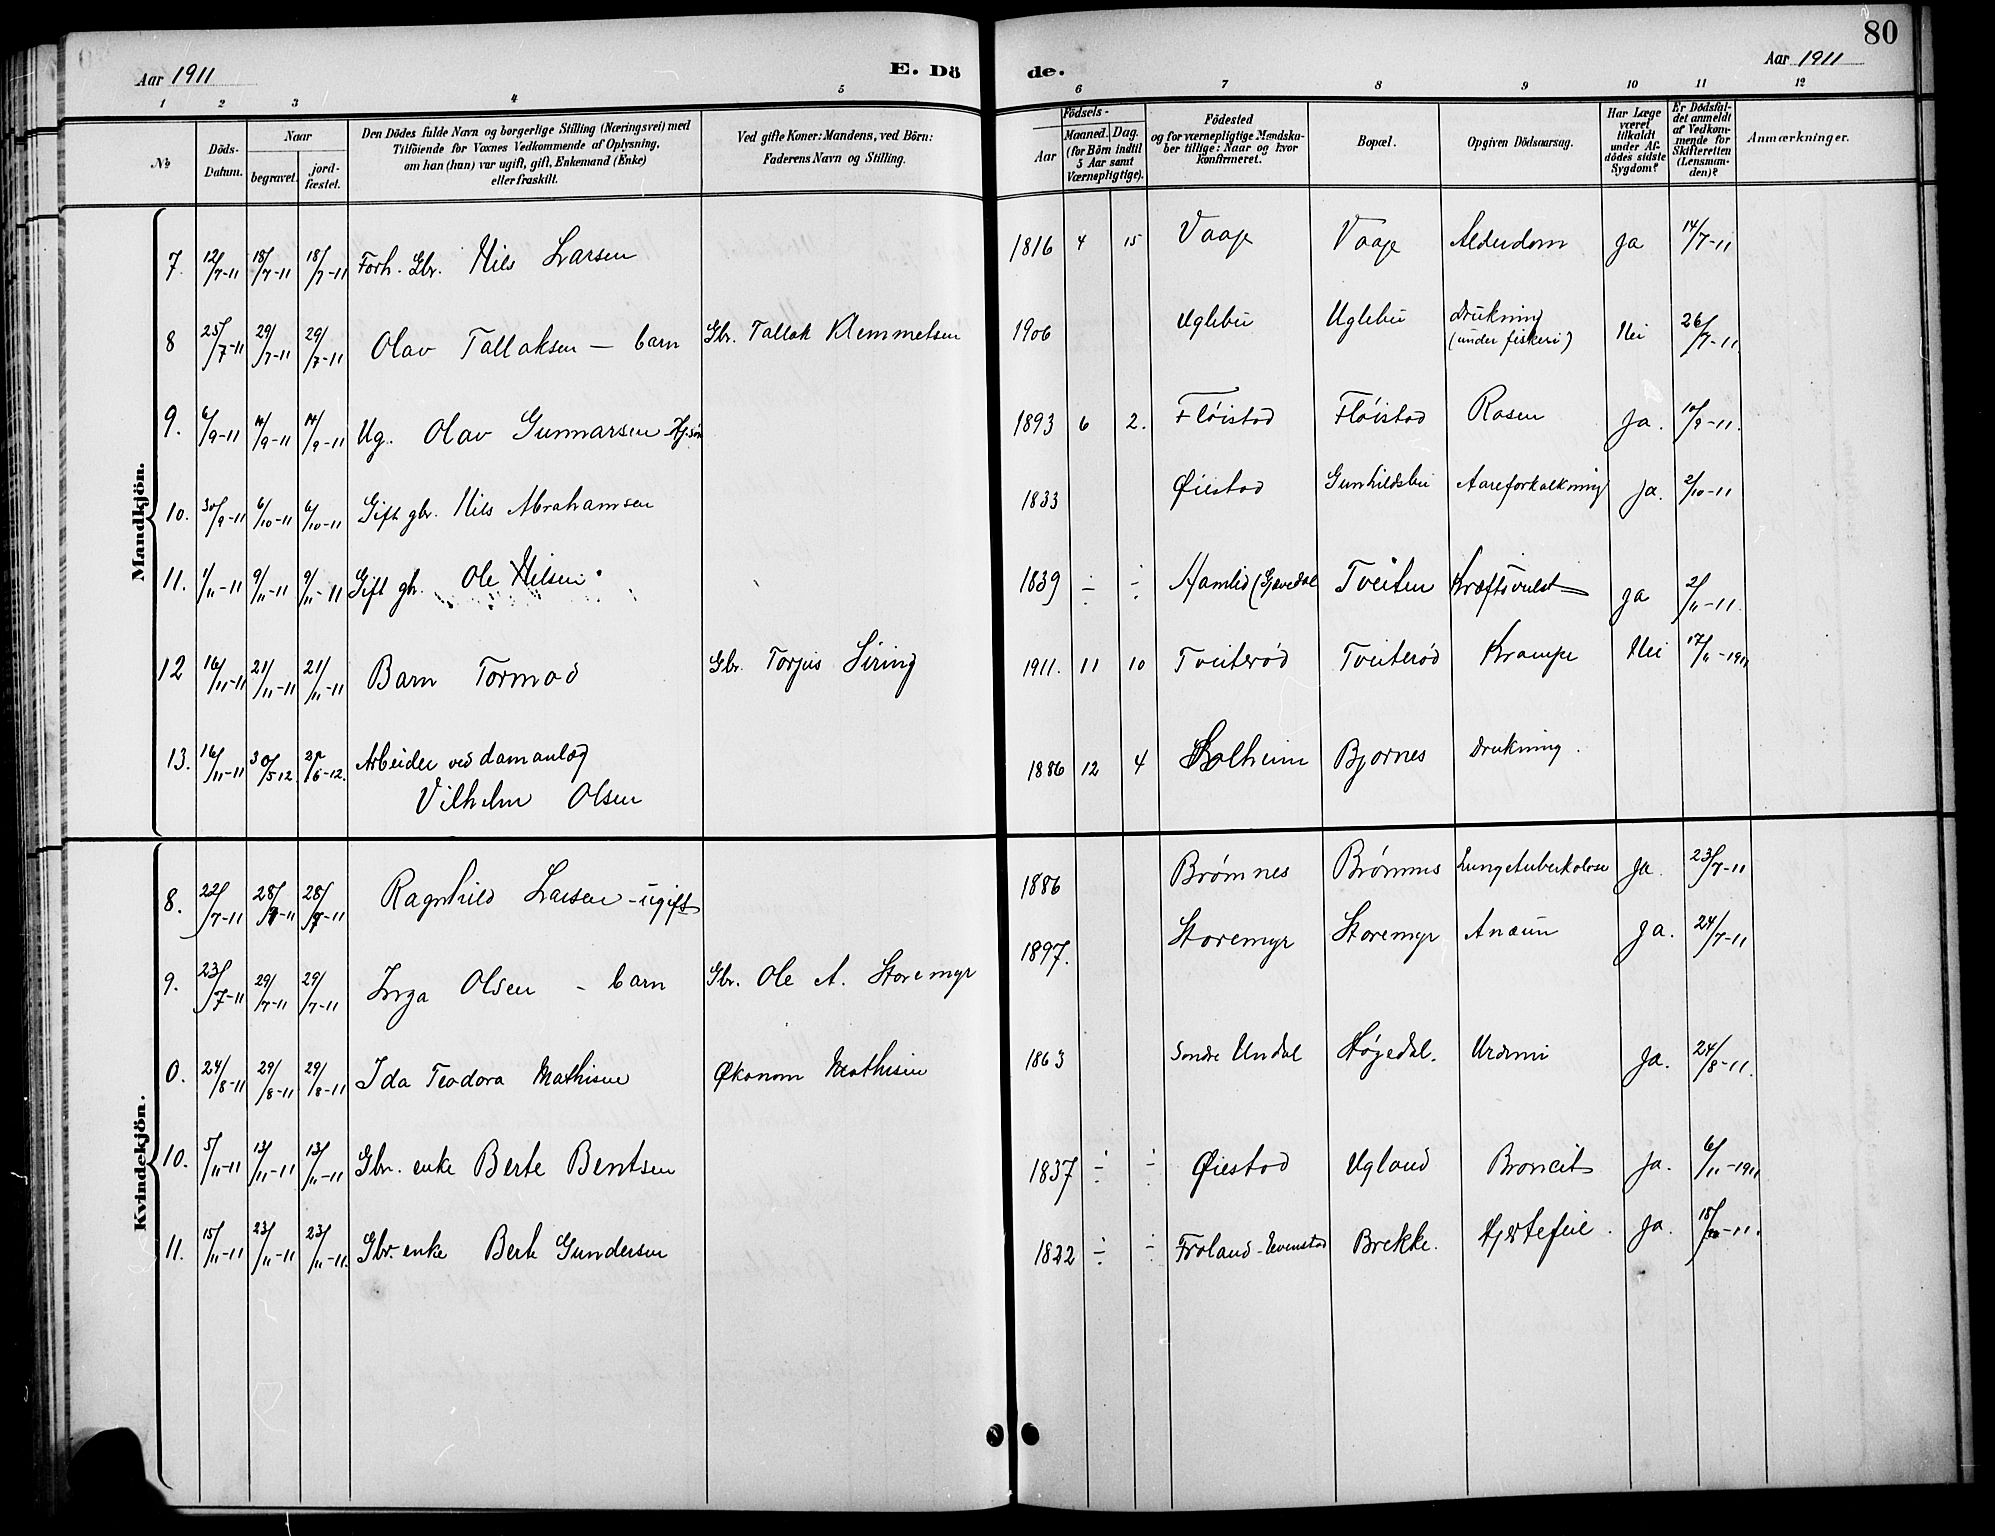 80
Aar 1911 E. Dö de. Aar 1911
1 2 3 4 5 6 7 8 9 10 11 12
No
Döds-
Datum.
Naar
begravet.
jord-
fæstet.
Den Dödes fulde Navn og borgerlige Stilling (Næringsvei) med
Tilföiende for Voxnes Vedkommende af Oplysning,
om han (hun) var ugift, gift, Enkemand (Enke)
eller fraskilt.
Ved gifte Koner: Mandens, ved Börn:
Faderens Navn og Stilling.
Födsels-
Aar
Maaned. Dag.
(for Börn indtil
5 Aar samt
Værnepligtige).
Födested
og for værnepligtige Mandska-
ber tillige: Naar og hvor
konfirmeret.
Bopæl.
Opgiven Dödsaarsag.
Har Læge
været
tilkaldt
under Af-
dödes sidste
Sygdom?
Er Dödsfal-
det anmeldt
af Vedkom-
mende for
Skifteretten
(Lensman-
den)?
Anmærkninger.
Mandkjön.
7. 12/7-11 18/7-11 18/7-11 Forh. Gbr. Nils Larsen 1816 4 15 Vaage Vaage Alderdom Ja 14/7-11
8 25/7-11 29/7-11 29/7-11 Olav Tallaksen — barn Gbr. Tallak Klemmetsen 1906 Uglebu Uglebu Drukning
(under fiskeri) Nei 26/7-11.
9. 6/9-11 14/9-11 14/9-11 Ug. Olav Gunnarsen 1893 6 2. Fløistad Fløistad Rosen Ja. 10/9-11.
10. 30/9-11 6/10-11 6/10-11 Gift gbr. Nils Abrahamsen 1833 Øiestad Gunhildsbu Aareforkalkning Ja. 2/10-11
11. 1/11-11 9/11-11 9/11-11 Gift gbr. Ole Nilsen 1839 ÷ ÷ Aamlid (Gjøvedal Tveiten Kræftsvulst Ja 2/11-11.
12 16/11-11 21/11-11 21/11-11 Barn Tormod Gbr. Torjus Siring 1911. 11 10 Tveiterød Tveiterød Krampe Nei 17/11-1911
13. 16/11-11 30/5 12. 2/6-12. Arbeider ved damanlæg
Vilhelm Olsen 1886 12 4 Solheim Bjornes Drukning.
Kvindekjön.
8. 22/7-11 28/7-11 28/7-11 Ragnhild Larsen - ugift 1886 Brømnes Brømnes Lungetuberkolose Ja. 23/7-11
9. 23/7-11 29/7-11 29/7-11 Inga Olsen - barn Gbr. Ole A. Storemyr 1897. Storemyr Storemyr Ja. 24/7-11
0. 24/8-11 29/8-11 29/8-11 Ida Teodora Mathisen Økonom Mathisen 1863 Søndre Undal Høgedal. Urämi Ja. 24/8-11.
10. 5/11-11 13/11-11 13/11-11 Gbr. enke Berte Bentsen 1837 ÷ ÷ Øiestad Ugland Broncit Ja. 6/11-1911
11. 15/11-11 23/11-11 23/11-11. Gbr. enke Berte Gundersen 1822 ÷ ÷ Froland - Evenstad Brekke. Hjertefeil. Ja. 18/11-11.